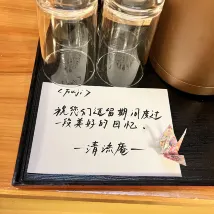 <Fuji>
祝您们逗留期间度过
一段美好的回忆。
—清流庵—